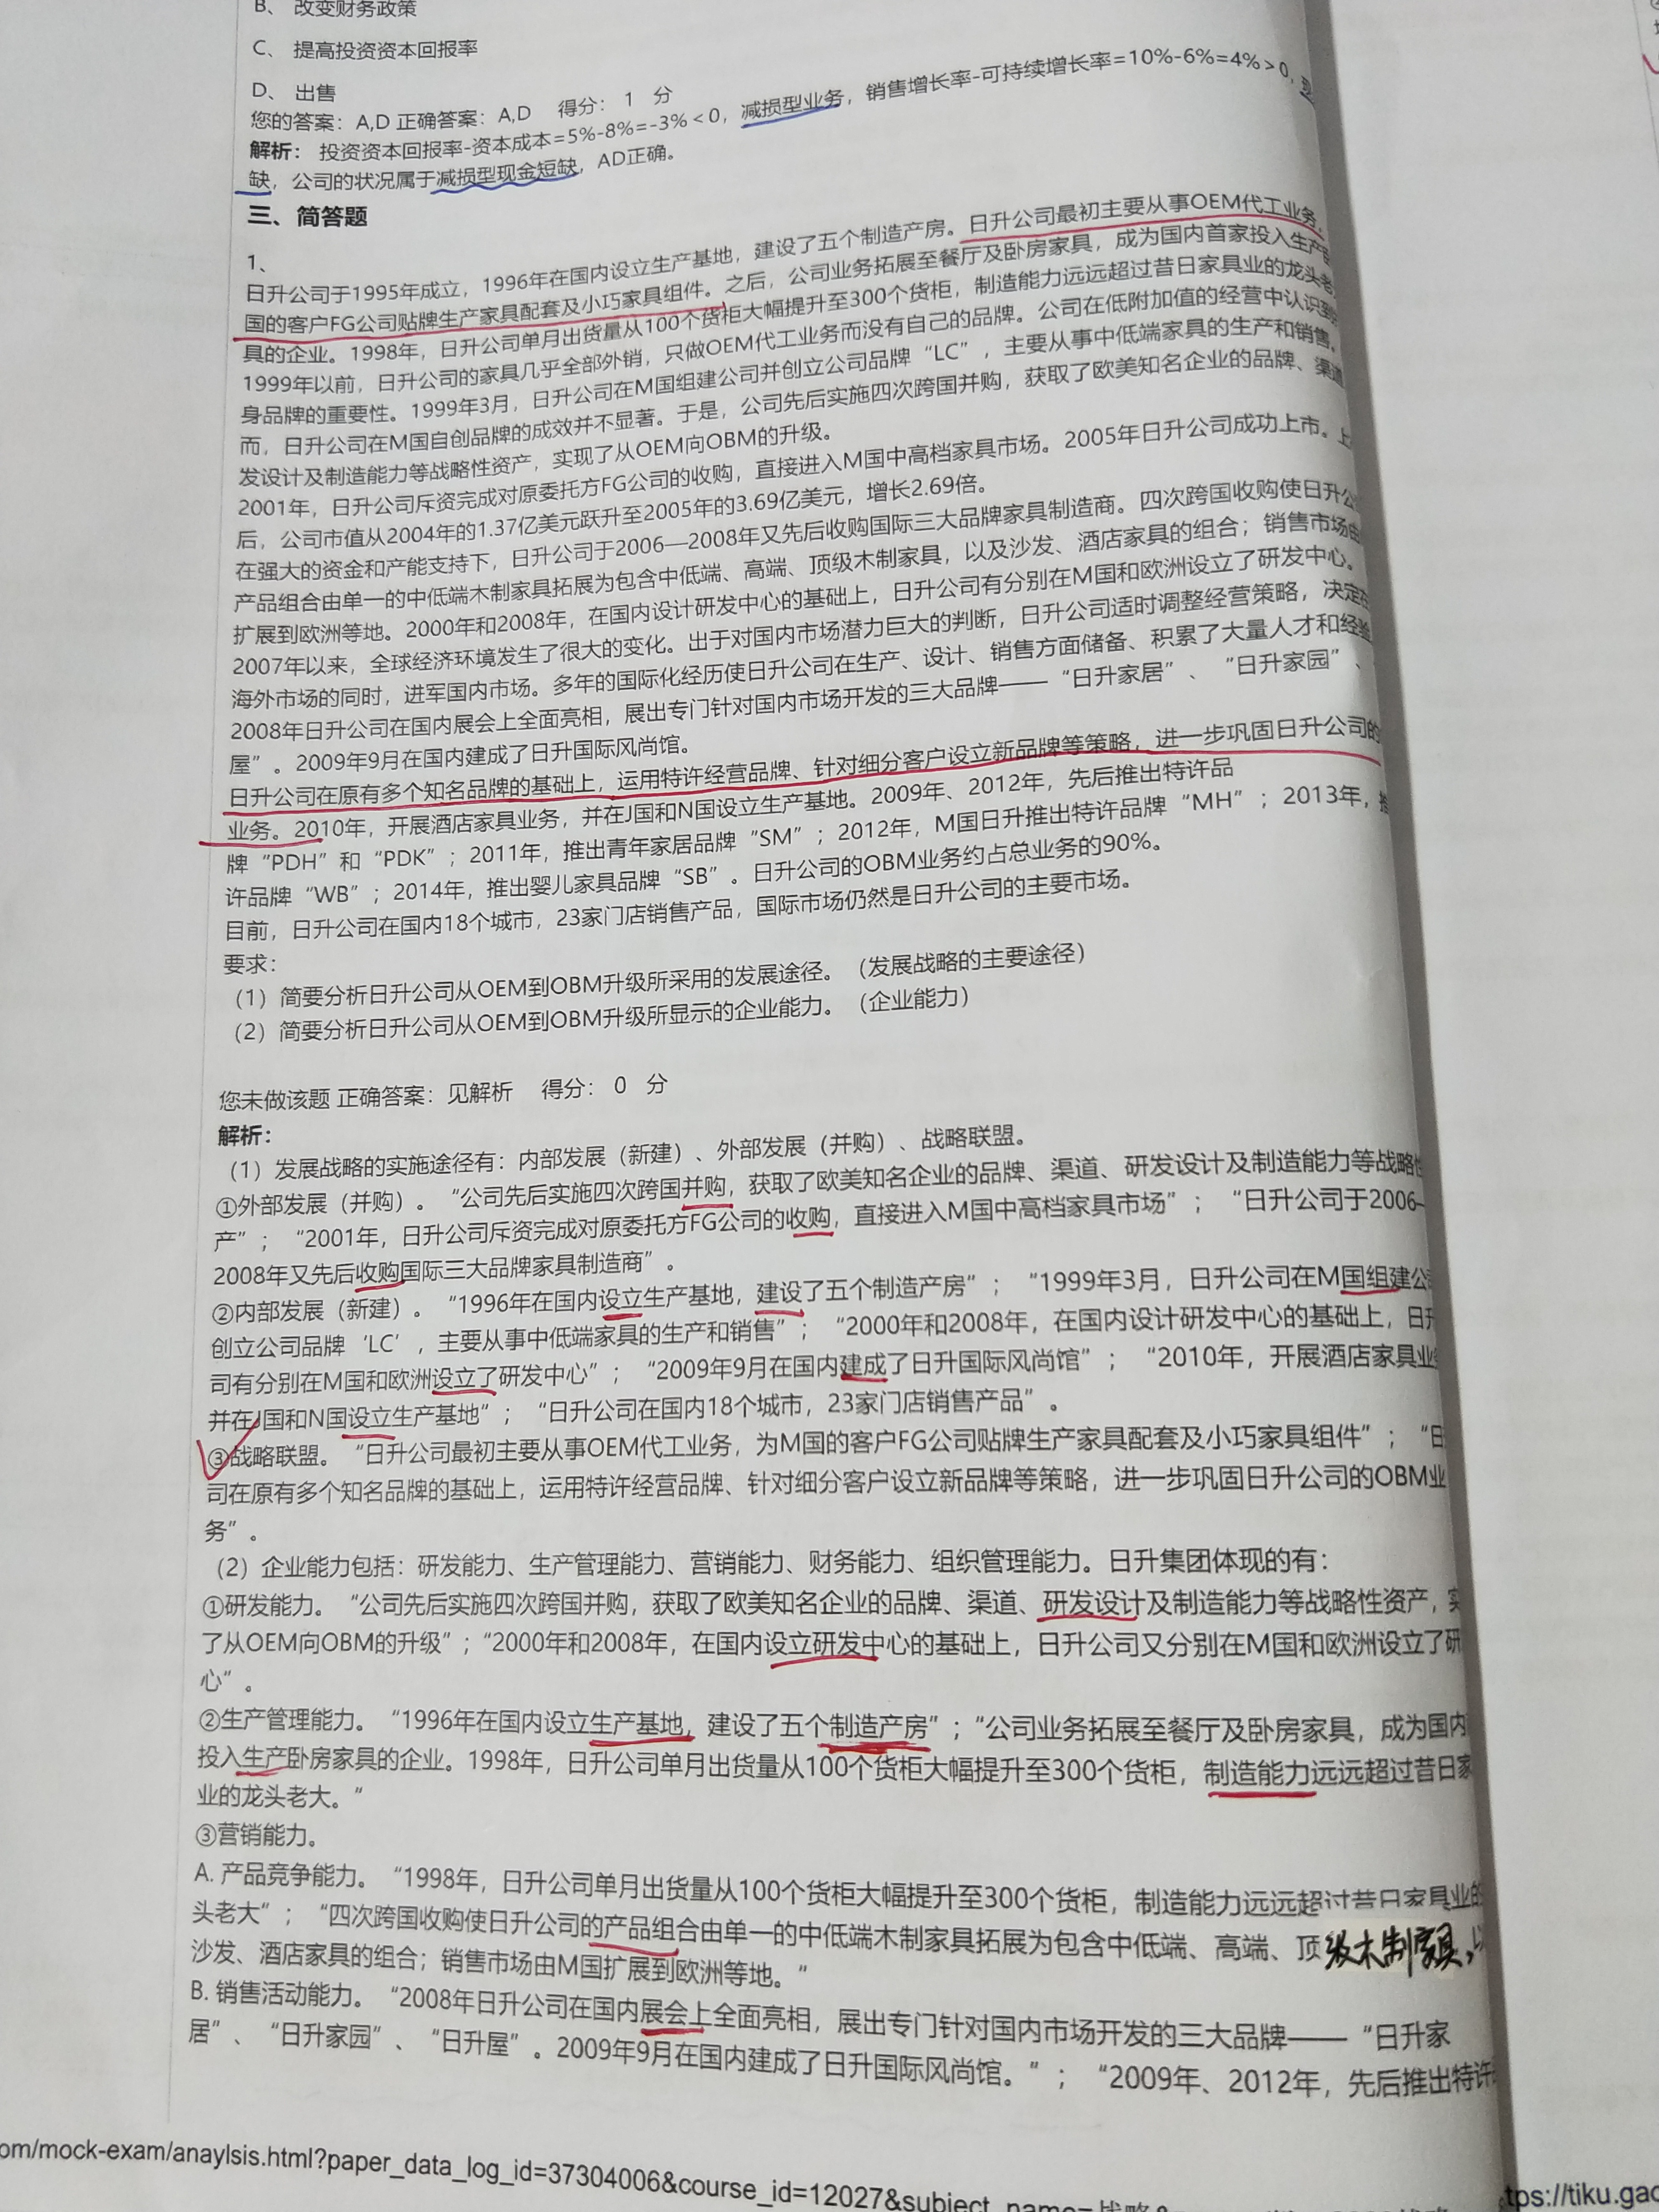 B、 改变财务政策
C、 提高投资资本回报率
D、 出售
您的答案：A,D 正确答案：A,D 得分： 1 分
解析： 投资资本回报率-资本成本=5%-8%=-3%<0，减损型业务，销售增长率-可持续增长率=10%-6%=4%>0，现
缺，公司的状况属于减损型现金短缺，AD正确。
三、简答题
1、
日升公司于1995年成立，1996年在国内设立生产基地，建设了五个制造产房。日升公司最初主要从事OEM代工业务，
国的客户FG公司贴牌生产家具配套及小巧家具组件。之后，公司业务拓展至餐厅及卧房家具，成为国内首家投入生产
具的企业。1998年，日升公司单月出货量从100个货柜大幅提升至300个货柜，制造能力远远超过昔日家具业的龙头老
1999年以前，日升公司的家具几乎全部外销，只做OEM代工业务而没有自己的品牌。公司在低附加值的经营中认识到
身品牌的重要性。1999年3月，日升公司在M国组建公司并创立公司品牌“LC”，主要从事中低端家具的生产和销售。
而，日升公司在M国自创品牌的成效并不显著。于是，公司先后实施四次跨国并购，获取了欧美知名企业的品牌、渠道
发设计及制造能力等战略性资产，实现了从OEM向OBM的升级。
2001年，日升公司斥资完成对原委托方FG公司的收购，直接进入M国中高档家具市场。2005年日升公司成功上市。上
后，公司市值从2004年的1.37亿美元跃升至2005年的3.69亿美元，增长2.69倍。
在强大的资金和产能支持下，日升公司于2006—2008年又先后收购国际三大品牌家具制造商。四次跨国收购使日升公
产品组合由单一的中低端木制家具拓展为包含中低端、高端、顶级木制家具，以及沙发、酒店家具的组合；销售市场由
扩展到欧洲等地。2000年和2008年，在国内设计研发中心的基础上，日升公司有分别在M国和欧洲设立了研发中心。
2007年以来，全球经济环境发生了很大的变化。出于对国内市场潜力巨大的判断，日升公司适时调整经营策略，决定在
海外市场的同时，进军国内市场。多年的国际化经历使日升公司在生产、设计、销售方面储备、积累了大量人才和经验
2008年日升公司在国内展会上全面亮相，展出专门针对国内市场开发的三大品牌——“日升家居”、“日升家园”、
屋”。2009年9月在国内建成了日升国际风尚馆。
日升公司在原有多个知名品牌的基础上，运用特许经营品牌、针对细分客户设立新品牌等策略，进一步巩固日升公司的
业务。2010年，开展酒店家具业务，并在J国和N国设立生产基地。2009年、2012年，先后推出特许品
牌“PDH”和“PDK”；2011年，推出青年家居品牌“SM”；2012年，M国日升推出特许品牌“MH”；2013年，推
许品牌“WB”；2014年，推出婴儿家具品牌“SB”。日升公司的OBM业务约占总业务的90%。
目前，日升公司在国内18个城市，23家门店销售产品，国际市场仍然是日升公司的主要市场。
要求：
（1）简要分析日升公司从OEM到OBM升级所采用的发展途径。（发展战略的主要途径）
（2）简要分析日升公司从OEM到OBM升级所显示的企业能力。（企业能力）
您未做该题 正确答案：见解析 得分： 0 分
解析：
（1）发展战略的实施途径有：内部发展（新建）、外部发展（并购）、战略联盟。
①外部发展（并购）。“公司先后实施四次跨国并购，获取了欧美知名企业的品牌、渠道、研发设计及制造能力等战略性
产”；“2001年，日升公司斥资完成对原委托方FG公司的收购，直接进入M国中高档家具市场”；“日升公司于2006—
2008年又先后收购国际三大品牌家具制造商”。
②内部发展（新建）。“1996年在国内设立生产基地，建设了五个制造产房”；“1999年3月，日升公司在M国组建公
创立公司品牌‘LC’，主要从事中低端家具的生产和销售”；“2000年和2008年，在国内设计研发中心的基础上，日升
司有分别在M国和欧洲设立了研发中心”；“2009年9月在国内建成了日升国际风尚馆”；“2010年，开展酒店家具业
并在J国和N国设立生产基地”；“日升公司在国内18个城市，23家门店销售产品”。
③战略联盟。“日升公司最初主要从事OEM代工业务，为M国的客户FG公司贴牌生产家具配套及小巧家具组件”；“日
司在原有多个知名品牌的基础上，运用特许经营品牌、针对细分客户设立新品牌等策略，进一步巩固日升公司的OBM业
务”。
（2）企业能力包括：研发能力、生产管理能力、营销能力、财务能力、组织管理能力。日升集团体现的有：
①研发能力。“公司先后实施四次跨国并购，获取了欧美知名企业的品牌、渠道、研发设计及制造能力等战略性资产，实
了从OEM向OBM的升级”；“2000年和2008年，在国内设立研发中心的基础上，日升公司又分别在M国和欧洲设立了研
心”。
②生产管理能力。“1996年在国内设立生产基地，建设了五个制造产房”；“公司业务拓展至餐厅及卧房家具，成为国内
投入生产卧房家具的企业。1998年，日升公司单月出货量从100个货柜大幅提升至300个货柜，制造能力远远超过昔日家
业的龙头老大。“
③营销能力。
A. 产品竞争能力。“1998年，日升公司单月出货量从100个货柜大幅提升至300个货柜，制造能力远远超过昔日家具业的
头老大”；“四次跨国收购使日升公司的产品组合由单一的中低端木制家具拓展为包含中低端、高端、顶级木制家具，以
沙发、酒店家具的组合；销售市场由M国扩展到欧洲等地。”
B. 销售活动能力。“2008年日升公司在国内展会上全面亮相，展出专门针对国内市场开发的三大品牌——“日升家
居”、“日升家园”、“日升屋”。2009年9月在国内建成了日升国际风尚馆。”；“2009年、2012年，先后推出特许
om/mock-exam/anaylsis.html?paper_data_log_id=37304006&course_id=12027&subject_name=战略
tps://tiku.gao